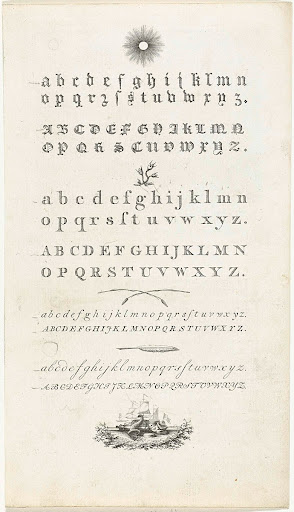 abcdefghijklmn
opqrꝛſstuvwxyz.
ABCDEFGHIJKLMN
OPQRSTUVWXYZ.
abcdefghijklmn
opqrsſtuvwxyz.
ABCDEFGHIJKLMN
OPQRSTUVWXYZ.
abcdefghijklmnopqrsſtuvwxyz.
ABCDEFGHIJKLMNOPQRSTUVWXYZ.
abcdefghijklmnopqrsſtuvwxyz.
ABCDEFGHIJKLMNOPQRSTUVWXYZ.